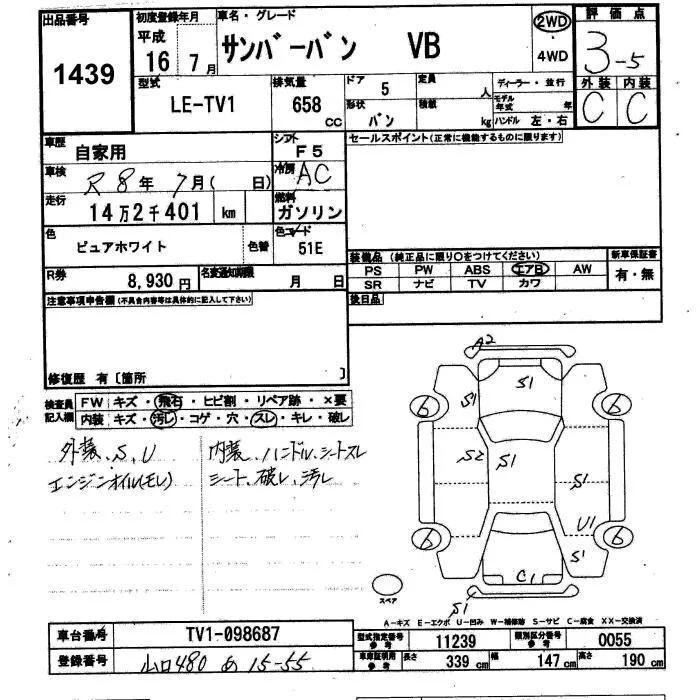 出品番号
1439
初度登録年月
平成
16年7月
車名・グレード
サンバーバン VB
2WD
4WD
評価点
3-5
外装 内装
C C
型式
LE-TV1
排気量
658 cc
ドア
5
形状
バン
定員
人
積載
kg
ディーラー・並行
モデル年式 年
ハンドル 左・右
車歴
自家用
シフト
F5
車検
R8年7月( 日)
冷房
AC
走行
14万2千401 km
燃料
ガソリン
色
ピュアホワイト
色替
色コード
51E
R券
8,930円
名変通知期限
月 日
セールスポイント(正常に機能するものに限ります)
装備品 (純正品に限り○をつけてください)
新車保証書
PS PW ABS エアB AW
有・無
SR ナビ TV カワ
後日品
注意事項申告欄(不具合内容等は具体的に記入して下さい)
修復歴 有〔箇所 〕
検査員記入欄
FW キズ・飛石・ヒビ割・リペア跡・×要
内装 キズ・汚レ・コゲ・穴・スレ・キレ・破レ
外装、S、U
エンジンオイル(モレ)
内装、ハンドル、シートスレ
シート、破レ、汚レ
A2
S1
S1
6 6
S2 S1 S1
U1
6 6
S1
C1
S1
スペア
A-キズ E-エクボ U-凹み W-補修跡 S-サビ C-腐食 XX-交換済
車台番号
TV1-098687
型式指定番号
参考
11239
類別区分番号
参考
0055
登録番号
山口480 あ 15-55
車庫証明用
参考
長さ
339 cm
幅
147 cm
高さ
190 cm